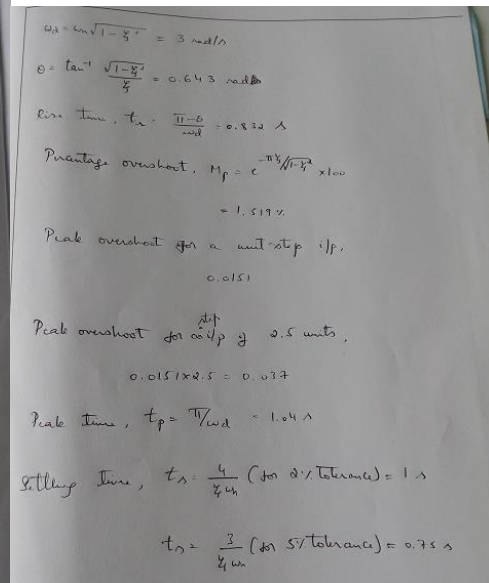 ωd = ωn√1-ξ² = 3 rad/s
θ = tan⁻¹ √1-ξ²/ξ = 0.643 rad
Rise time, tr = π-θ/ωd = 0.832 s
Percentage overshoot, Mp = e^-πξ/√1-ξ² ×100
= 1.519%
Peak overshoot for a unit-step i/p,
0.0151
Peak overshoot for step i/p of 2.5 units,
0.0151×2.5 = 0.037
Peak time, tp = π/ωd = 1.04 s
Settling time, ts = 4/ξωn (for 2% tolerance) = 1 s
ts = 3/ξωn (for 5% tolerance) = 0.75 s